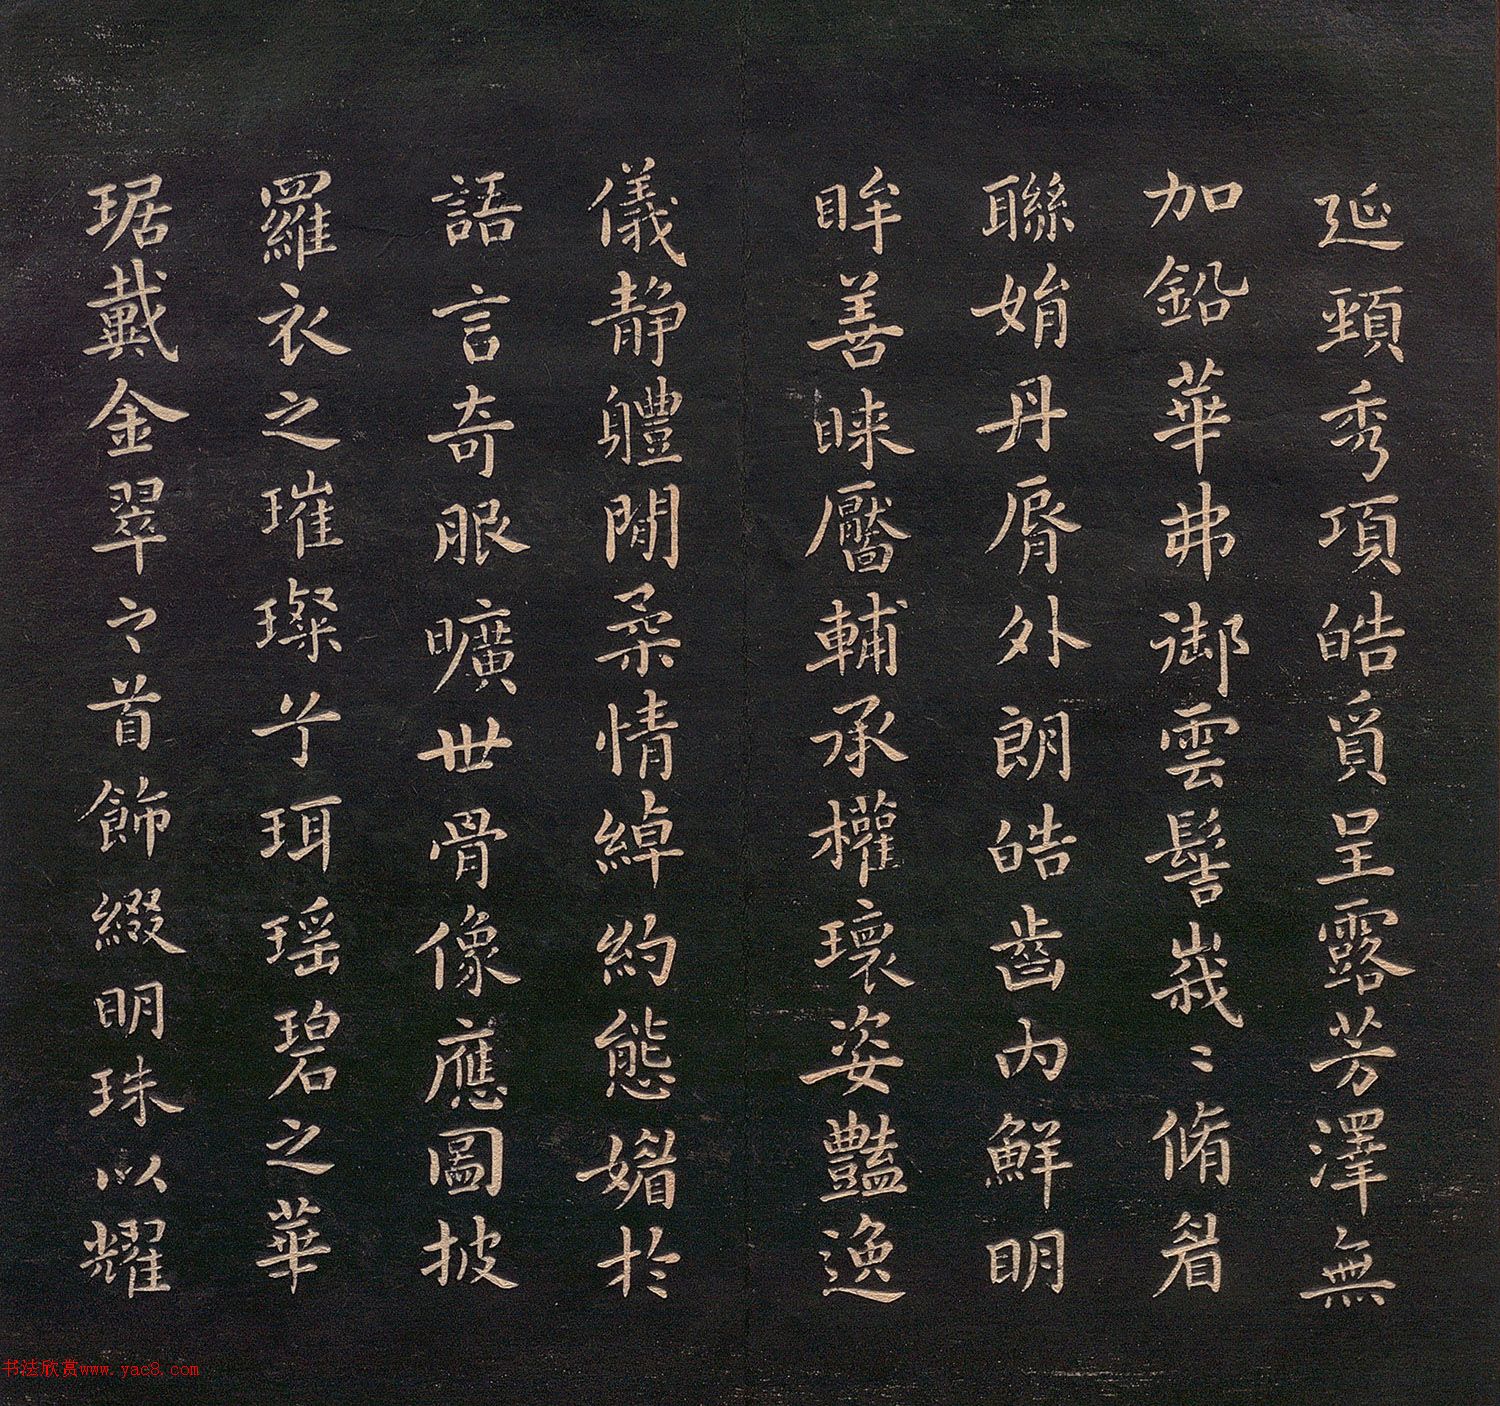 延頸秀項皓質呈露芳澤無
加鉛華弗御雲髻峩〻脩眉
聯娟丹脣外朗皓齒內鮮明
眸善睞靨輔承權瓌姿豔逸
儀静軆閒柔情綽約態媚於
語言奇服曠世骨像應圖披
羅衣之璀璨兮珥瑶碧之華
琚戴金翠之首飾綴明珠以耀
书法欣赏www.yac8.com